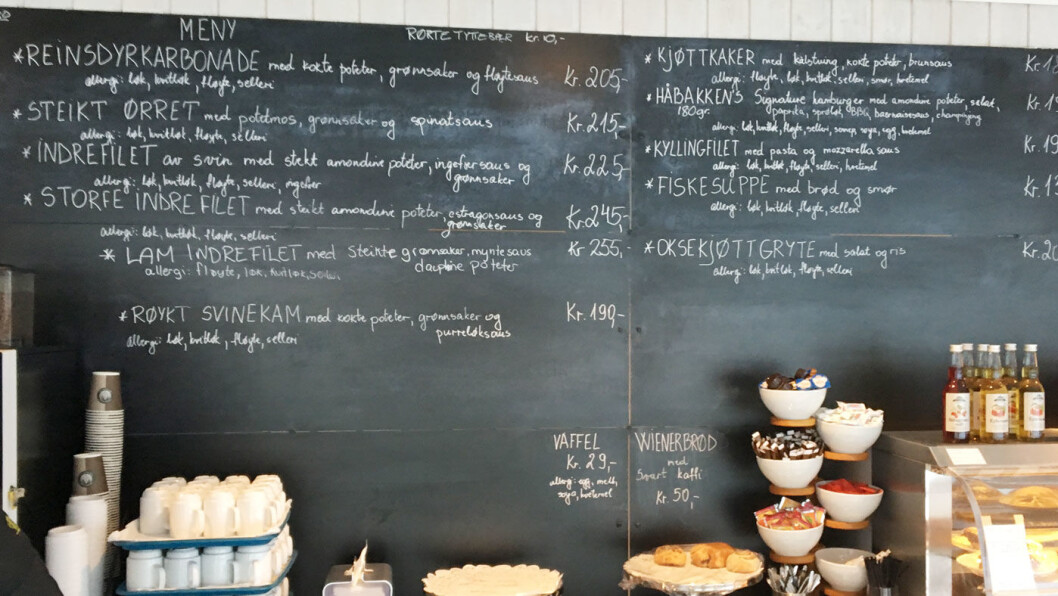 MENY
RØRTE TYTTEBÆR kr. 10,-
*REINSDYRKARBONADE med kokte poteter, grønnsaker og fløtesaus Kr. 205,-
allergi: løk, hvitløk, fløyte, selleri
*STEIKT ØRRET med potetmos, grønnsaker og spinatsaus Kr. 215,-
allergi: løk, hvitløk, fløyte, selleri
*INDREFILET av svin med stekt amondine poteter, ingefærsaus og Kr. 225,-
grønnsaker
allergi: løk, hvitløk, fløyte, selleri, ingefær
* STORFE INDREFILET med stekt amondine poteter, estragonsaus og Kr. 245,-
grønnsaker
allergi: løk, hvitløk, fløyte, selleri
* LAM INDREFILET med Steikte grønnsaker, myntesaus kr 255,-
dauphine poteter
allergi: fløyte, løk, hvitløk,
*RØYKT SVINEKAM med kokte poteter, grønnsaker og Kr. 190,-
purreløksaus
allergi: løk, hvitløk, fløyte, selleri
*KJØTTKAKER med kålstuing, kokte poteter, brunsaus Kr
allergi: fløyte, løk, hvitløk, selleri, smør, hvetemel
*HÅBAKKEN'S Signature hamburger med amondine poteter, salat, Kr
180gr. (paprika, sprøløk, BBQ, bearnaisesaus, champignong
allergi: løk, hvitløk, fløyte, selleri, sennep, soya, egg, hvetemel
*KYLLINGFILET med pasta og mozzarella saus Kr. 19
allergi: løk, hvitløk, fløyte, selleri, hvetemel
*FISKESUPPE med brød og smør Kr. 1
allergi: løk, hvitløk, fløyte, selleri
*OKSEKJØTTGRYTE med salat og ris Kr. 20
allergi: løk, hvitløk, fløyte, selleri
VAFFEL
Kr. 29,-
allergi: egg, melk,
soya, hvetemel
WIENERBRØD
med
Svart kaffi
Kr. 50,-